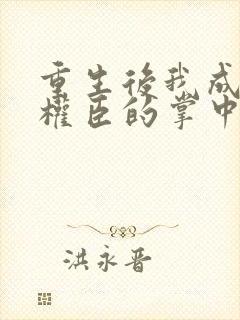 重生後我成
權臣的掌中
洪永晉